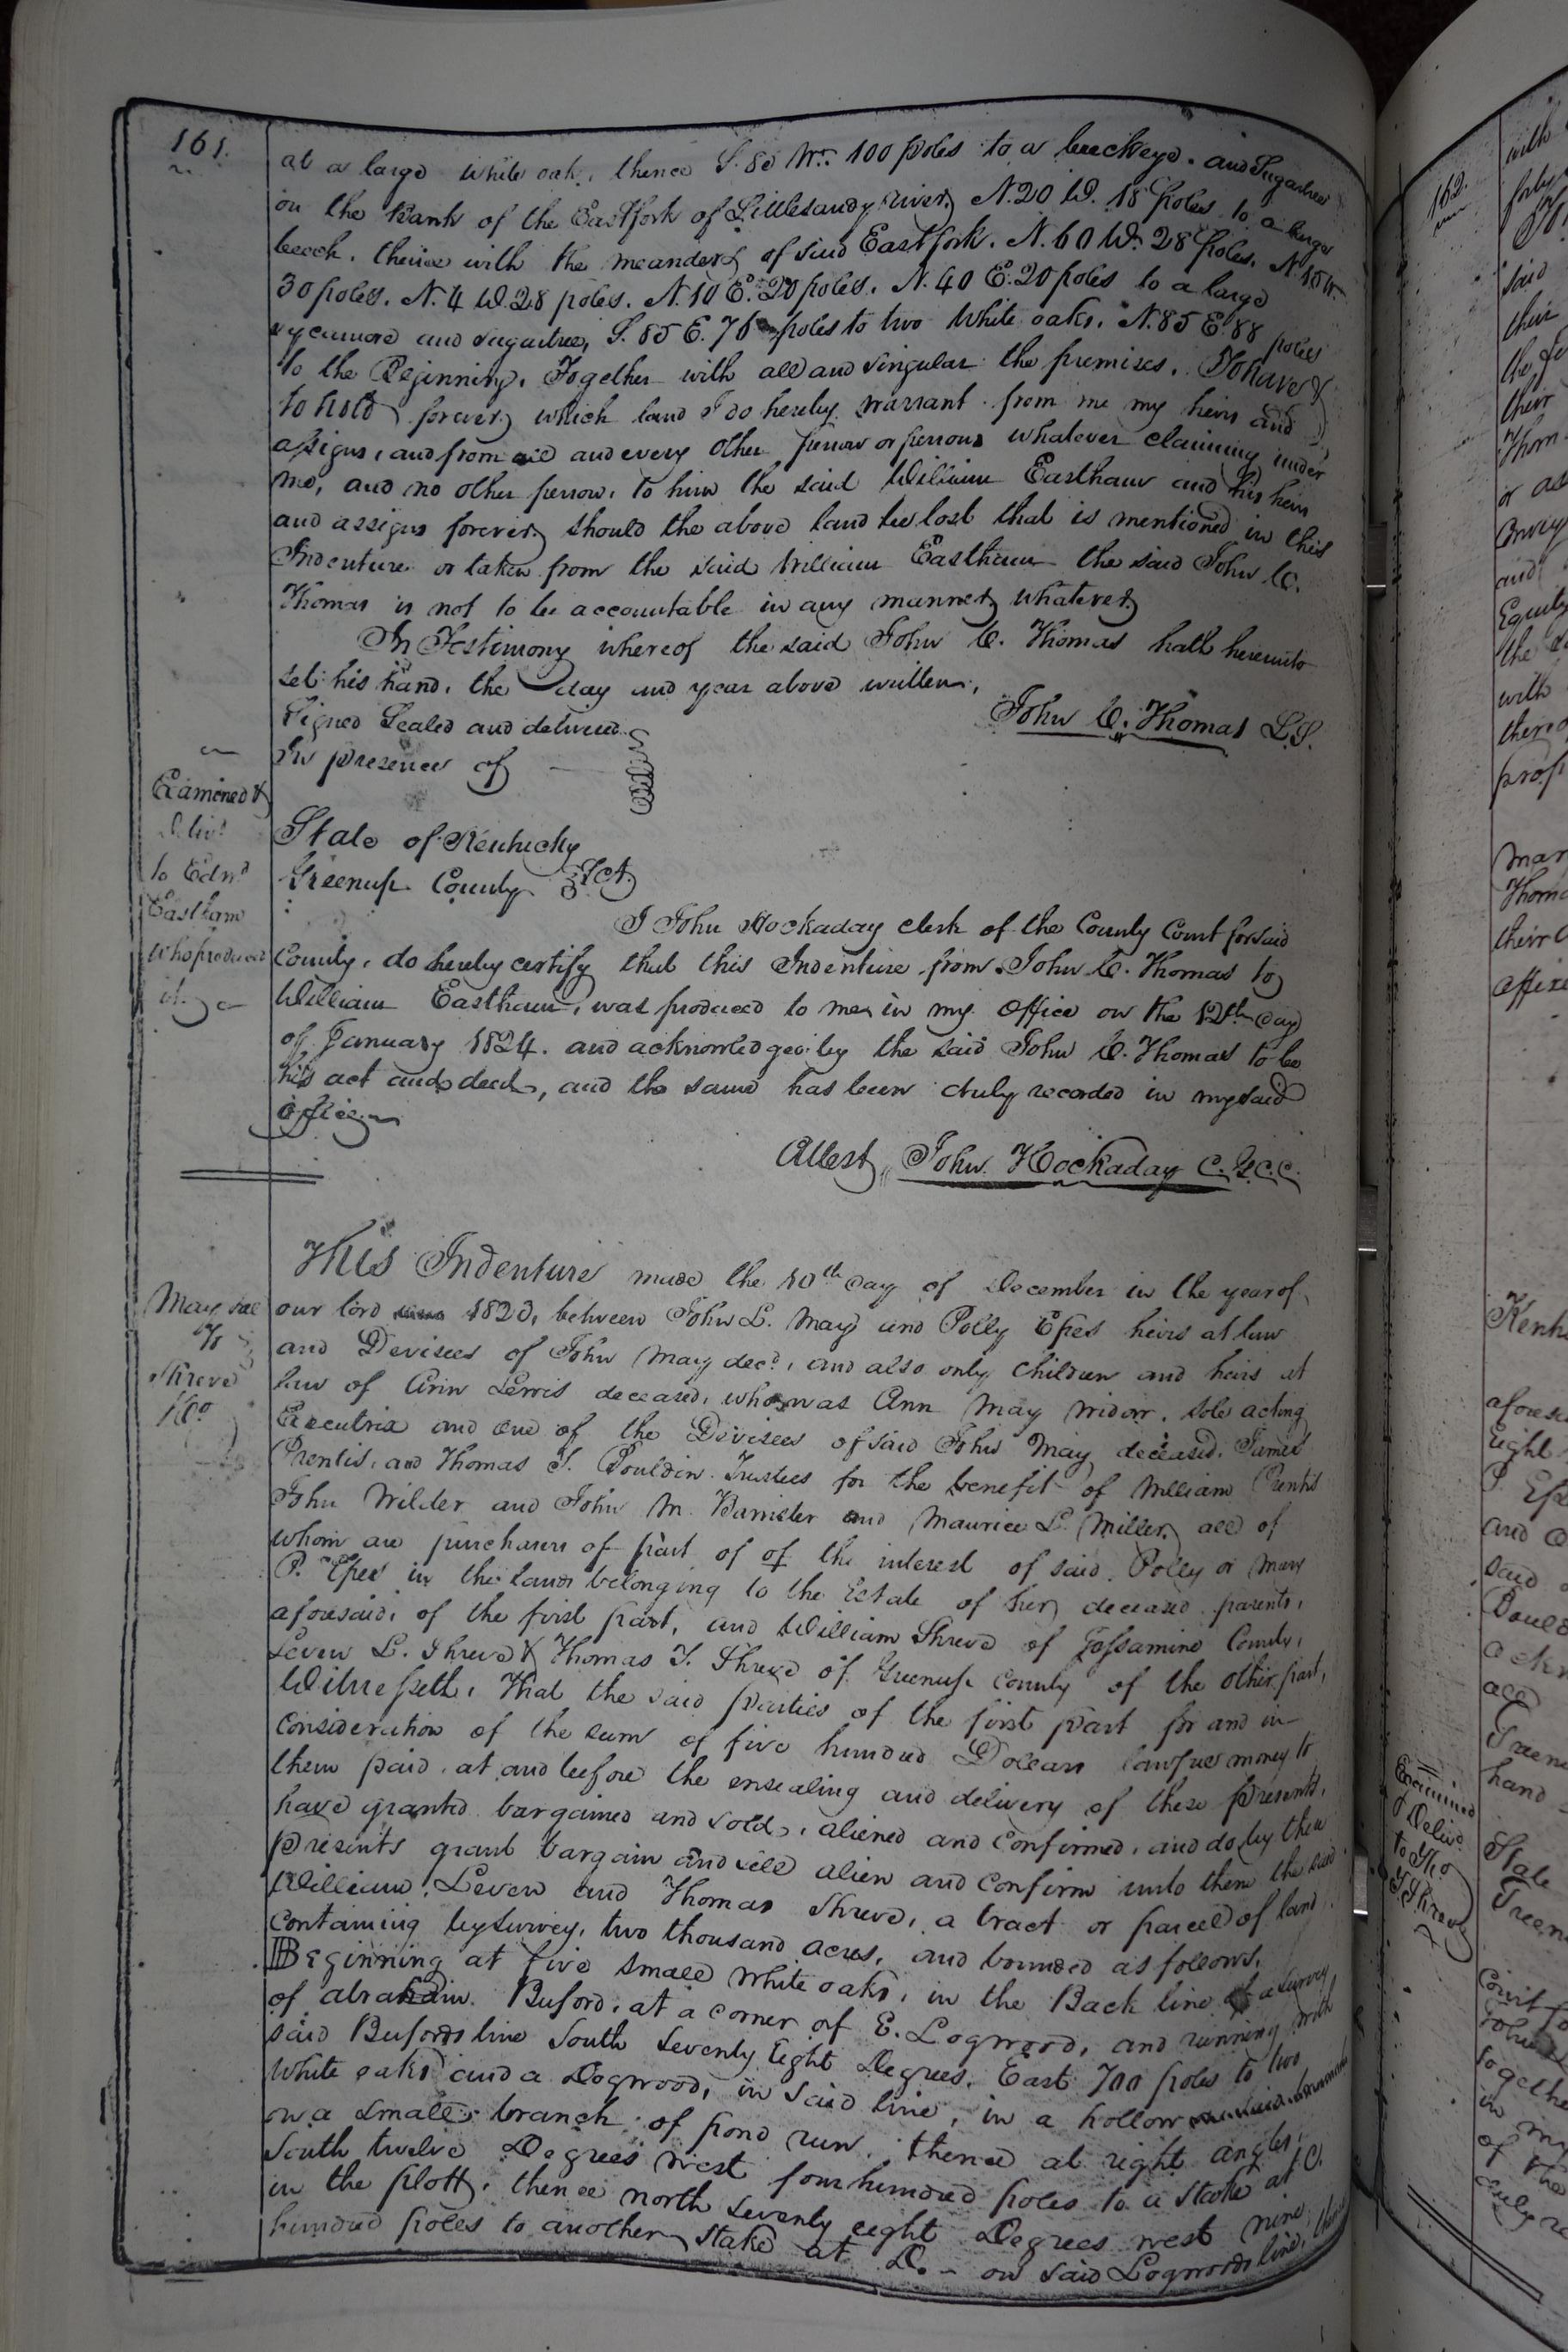 161.
at a large white oak, thence S. 80 Wt. 100 poles to a buckeye. and Sugartree
on the Bank of the Eastfork of Littlesandy river, N. 20 W. 18 poles, to a large
beech. thence with the meanders of said Eastfork. N. 60 W. 28 poles. N 15 W.
30 poles. N. 4 W. 28 poles. N. 10 E. 20 poles. N. 40 E. 20 poles to a large
sycamore and sugartree, S. 85 E. 76 poles to two White oaks. N. 85 E 88 poles
to the Beginning. Together with all and singular the premises. To have &
to hold forever, which land I do hereby warrant from me my heirs and
assigns, and from all and every other person or persons whatever claiming under
me, and no other person, to him the said William Eastham and his heirs
and assigns forever, should the above land be lost that is mentioned in this
Indenture or taken from the said William Eastham the said John C.
Thomas is not to be accountable in any manner, whatever,
In Testimony whereof the said John C. Thomas hath hereunto
set his hand, the day and year above written,
John C. Thomas L.S.
Signed Sealed and delivered
In presence of
Examined &
Delivd
to Edmd
Eastham
who produced
it.
State of Kentucky
Greenup County Sct.
I John Hockaday clerk of the County Court for said
County, do hereby certify that this Indenture from John C. Thomas to
William Eastham, was produced to me in my office on the 12th day
of January 1824. and acknowledged by the said John C. Thomas to be
his act and deed, and the same has been duly recorded in my said
office
Attest, John Hockaday C.G.C.C.
May &c
To
Shreve
&Co
This Indenture made the 10th day of December in the year of
our lord 1823, between John L. May and Polly Epes heirs at law
and Devisees of John May decd, and also only children and heirs at
law of Ann Lewis deceased, who was Ann May widow. sole acting
Executrix and one of the Devisees of said John May deceased. James
Prentis, and Thomas T. Bouldin Trustees for the benefit of William Prentis
John Wilder and John M. Banister and Maurice L. Miller, all of
whom are purchasers of part of of the interest of said Polly or Mary
P. Epes in the lands belonging to the Estate of her deceased parents,
aforesaid, of the first part, and William Shreve of Jessamine County,
Leven L. Shreve & Thomas T. Shreve of Greenup County of the other part,
Witnesseth, That the said parties of the first part for and in
Consideration of the sum of five hundred Dollars lawful money to
them paid, at and before the ensealing and delivery of these presents,
have granted bargained and sold, aliened and Confirmed, and do by these
presents grant bargain and sell alien and Confirm unto them the said
William, Leven and Thomas Shreve, a tract or parcel of land
Containing by survey, two thousand acres, and bounded as follows,
Beginning at five small white oaks, in the Back line of a survey
of abraham Buford, at a corner of E. Logwood, and running with
said Bufords line South Seventy Eight Degrees. East 700 poles to two
white oaks and a Dogwood, in said line, in a hollow
on a small branch of pond run. thence at right angles,
South twelve Degrees West four hundred poles to a Stake at C.
in the plott, thence north seventy eight Degrees west nine
hundred poles to another stake at D. - on said Logwoods line, thence
162.
Examined
& Delivd
to Tho
T Shreve
with
said
their
the
their
Thom
or as
and
Equity
the
with
thereo
prof
mar
Thoma
their
affixe
Kentu
aforesa
Eight
P. Ep
and
said
Bould
ackn
all
Greenu
hand
State
Green
Court fo
John
togethe
in my
of the
duly re